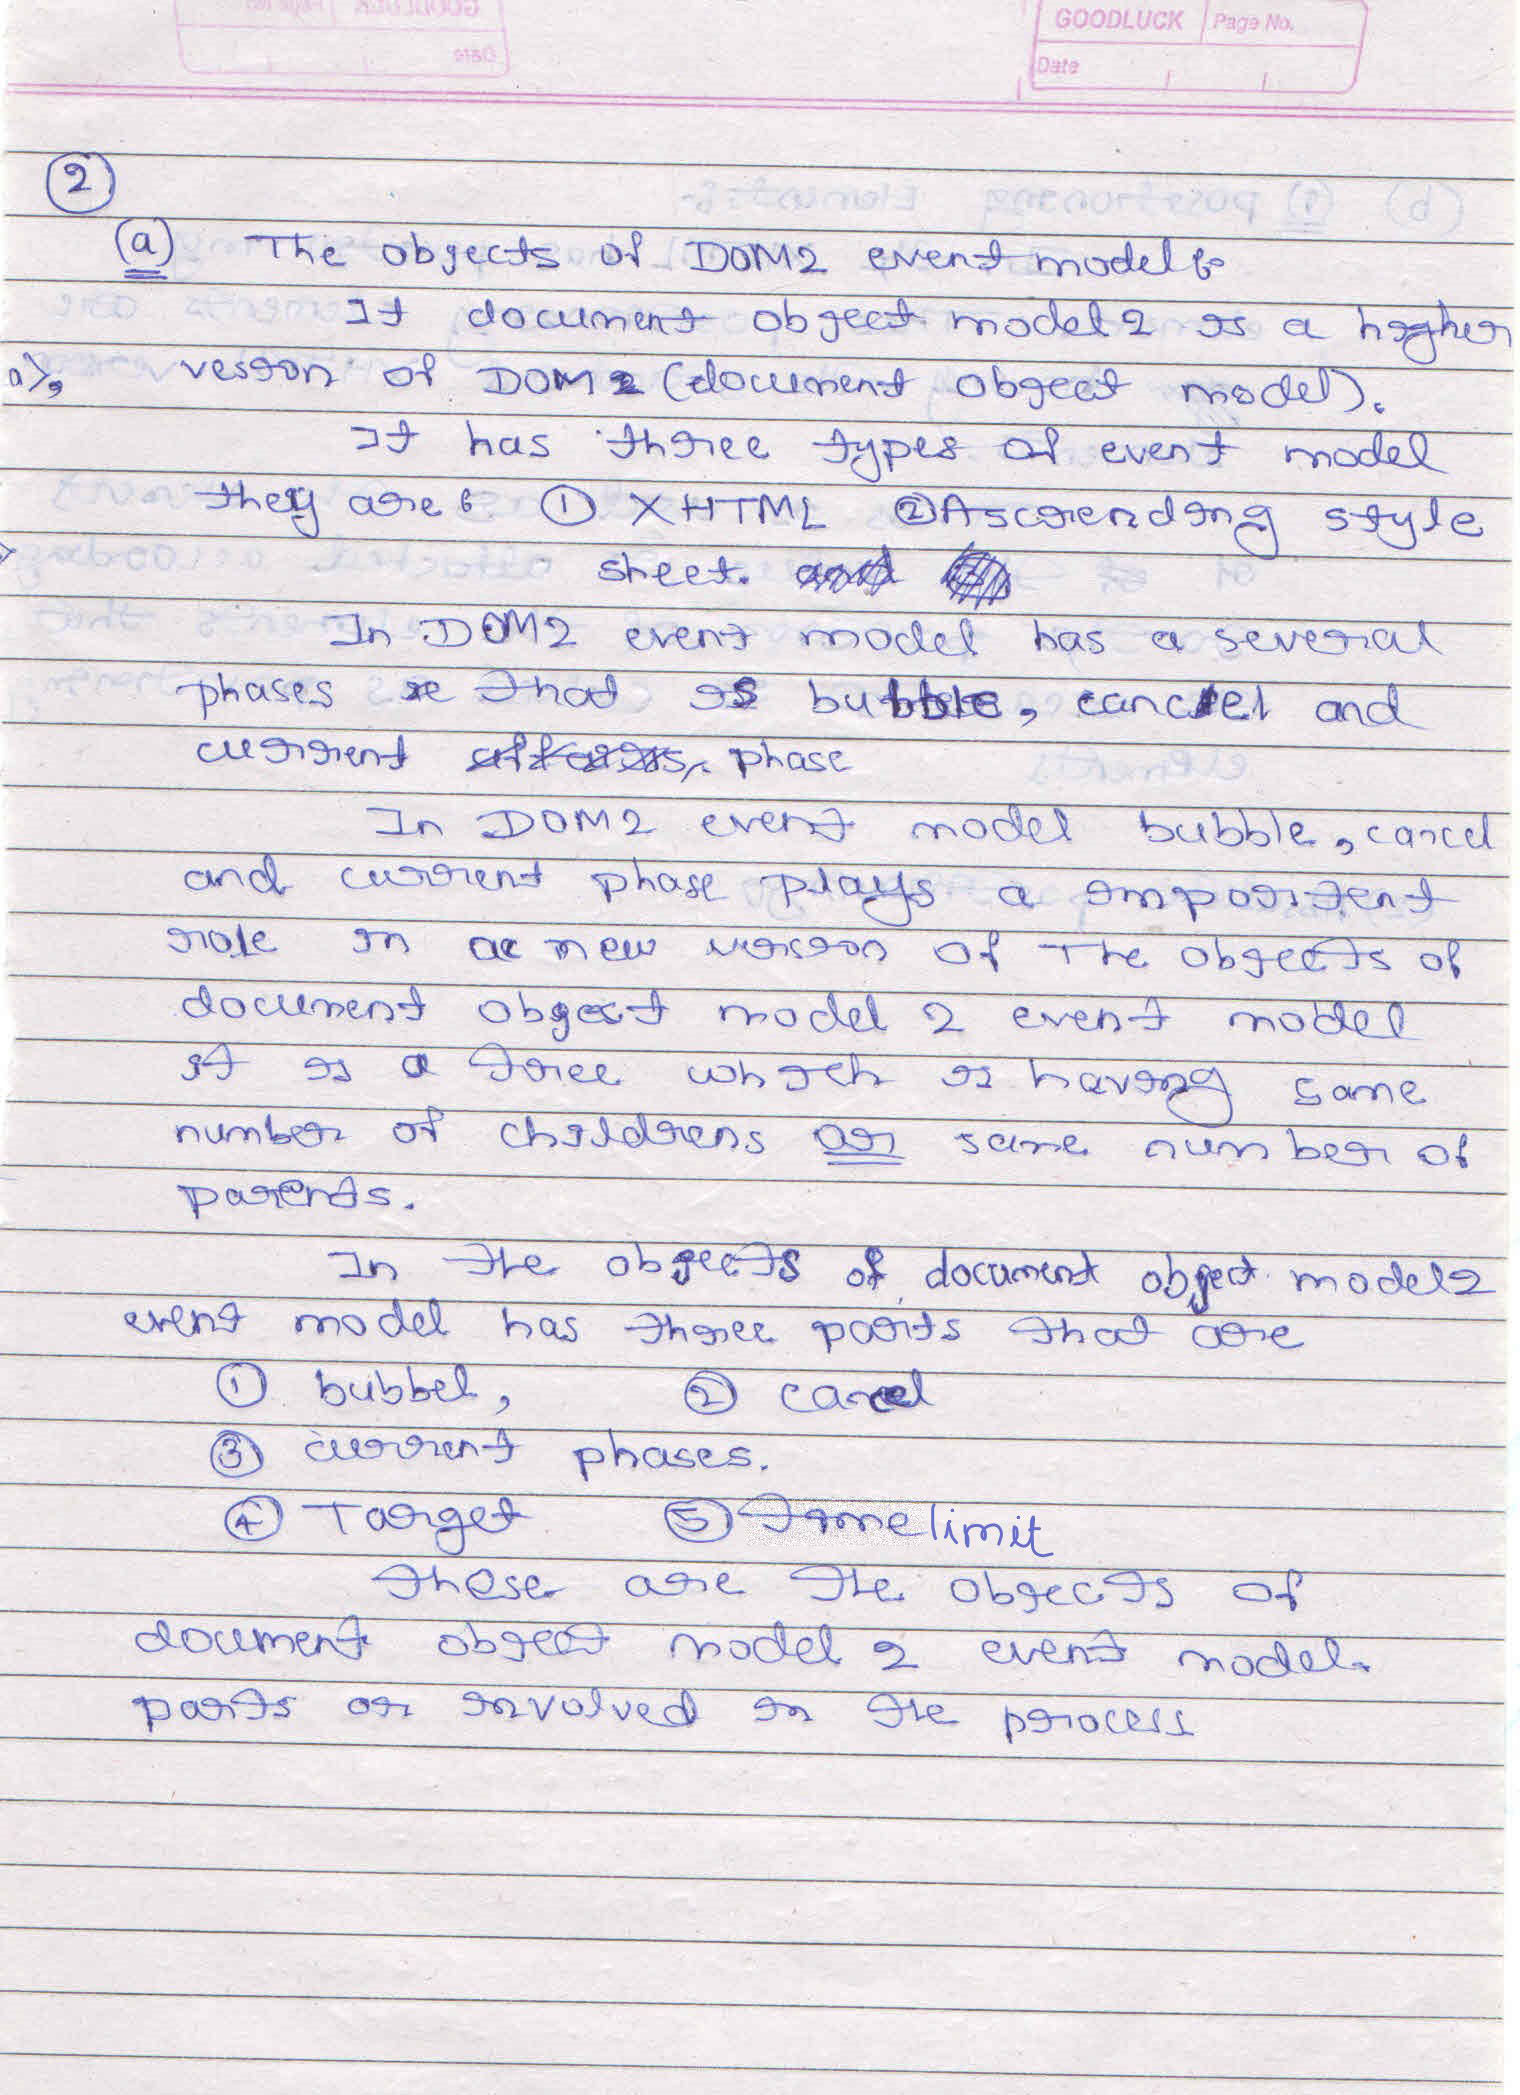 GOODLUCK Page No.
Date
2
(a) The objects of DOM2 event model :-
It document object model 2 is a higher
a), vesion of DOM 2 (document object model).
It has three types of event model
they are : ① XHTML ② Ascrending style
sheet. and
In DOM2 event model has a several
phases that is bubble, cancel and
current phase
In DOM2 event model bubble, cancel
and current phase plays a importent
role in a new version of The objects of
document object model 2 event model
it is a tree which is having same
number of childrens or same number of
parents.
In the objects of document object model 2
event model has three parts that are
① bubbel, ② cancel
③ current phases.
④ Target ⑤ Time limit
these are the objects of
document object model 2 event model.
parts or involved in the process